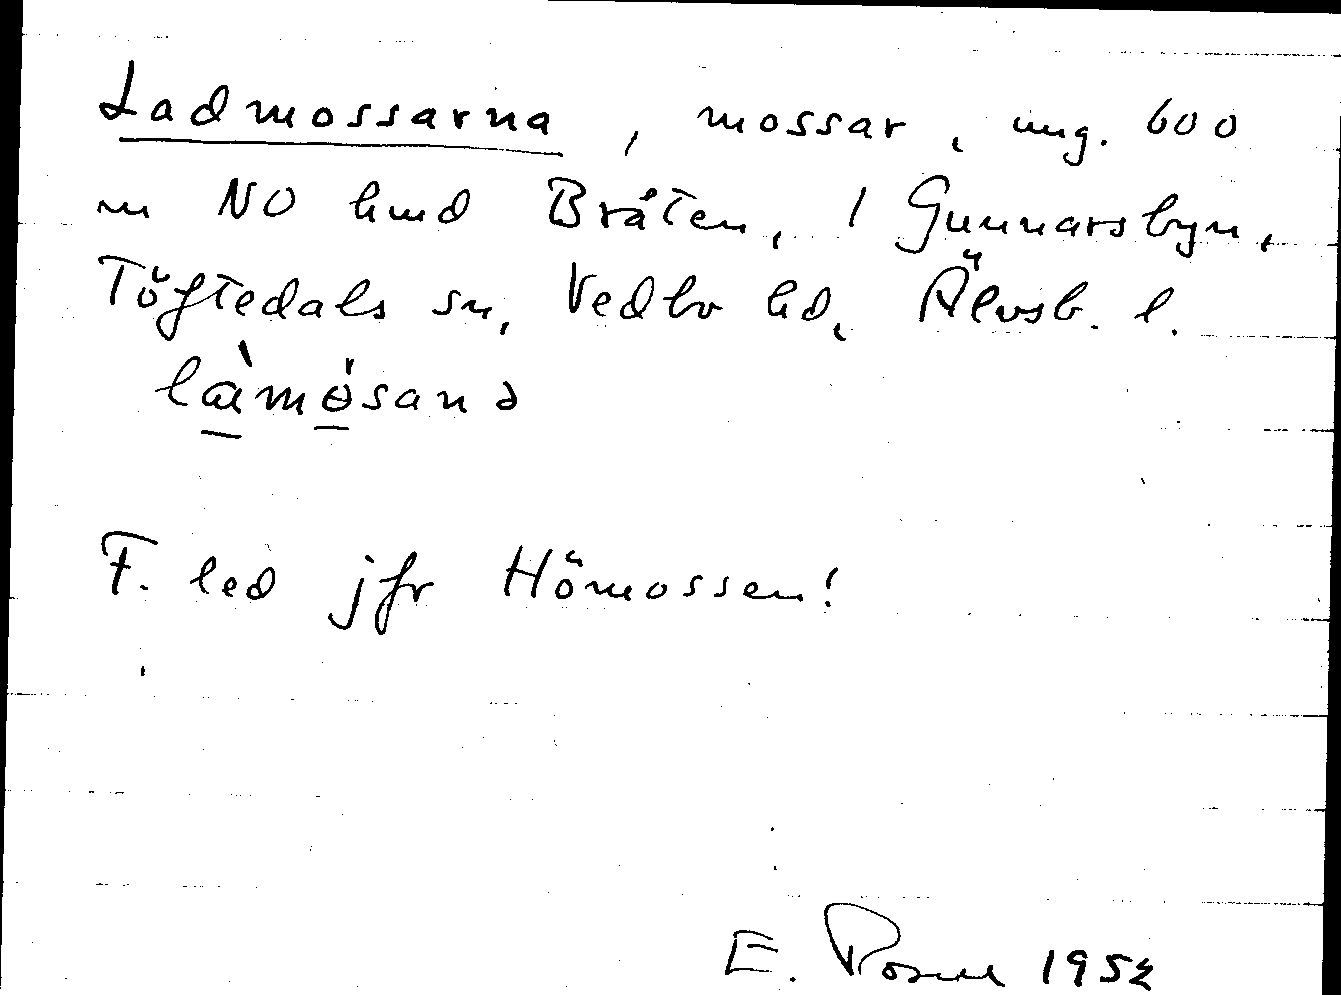 Ladmossarna, mossar, ung. 600
m NO hmd Bråten, 1 Gunnarsbyn,
Töftedals sn, Vedbo hd, Älvsb. l.
là̱mө̱́sanə
F. led jfr Hömossen!
E. 1952